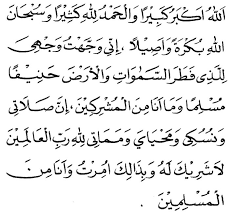 اَللهُ اَكْبَرُ كَبِيْرًا وَالْحَمْدُ لِلّٰهِ كَثِيْرًا وَسُبْحَانَ
اللهِ بُكْرَةً وَاَصِيْلًا، اِنِّى وَجَّهْتُ وَجْهِىَ
لِلَّذِى فَطَرَ السَّمٰوَاتِ وَالْاَرْضَ حَنِيْفًا
مُسْلِمًا وَمَا اَنَا مِنَ الْمُشْرِكِيْنَ، اِنَّ صَلَاتِى
وَنُسُكِى وَمَحْيَاىَ وَمَمَاتِى لِلّٰهِ رَبِّ الْعَالَمِيْنَ
لَاشَرِيْكَ لَهُ وَبِذَالِكَ اُمِرْتُ وَاَنَا مِنَ
الْمُسْلِمِيْنَ.